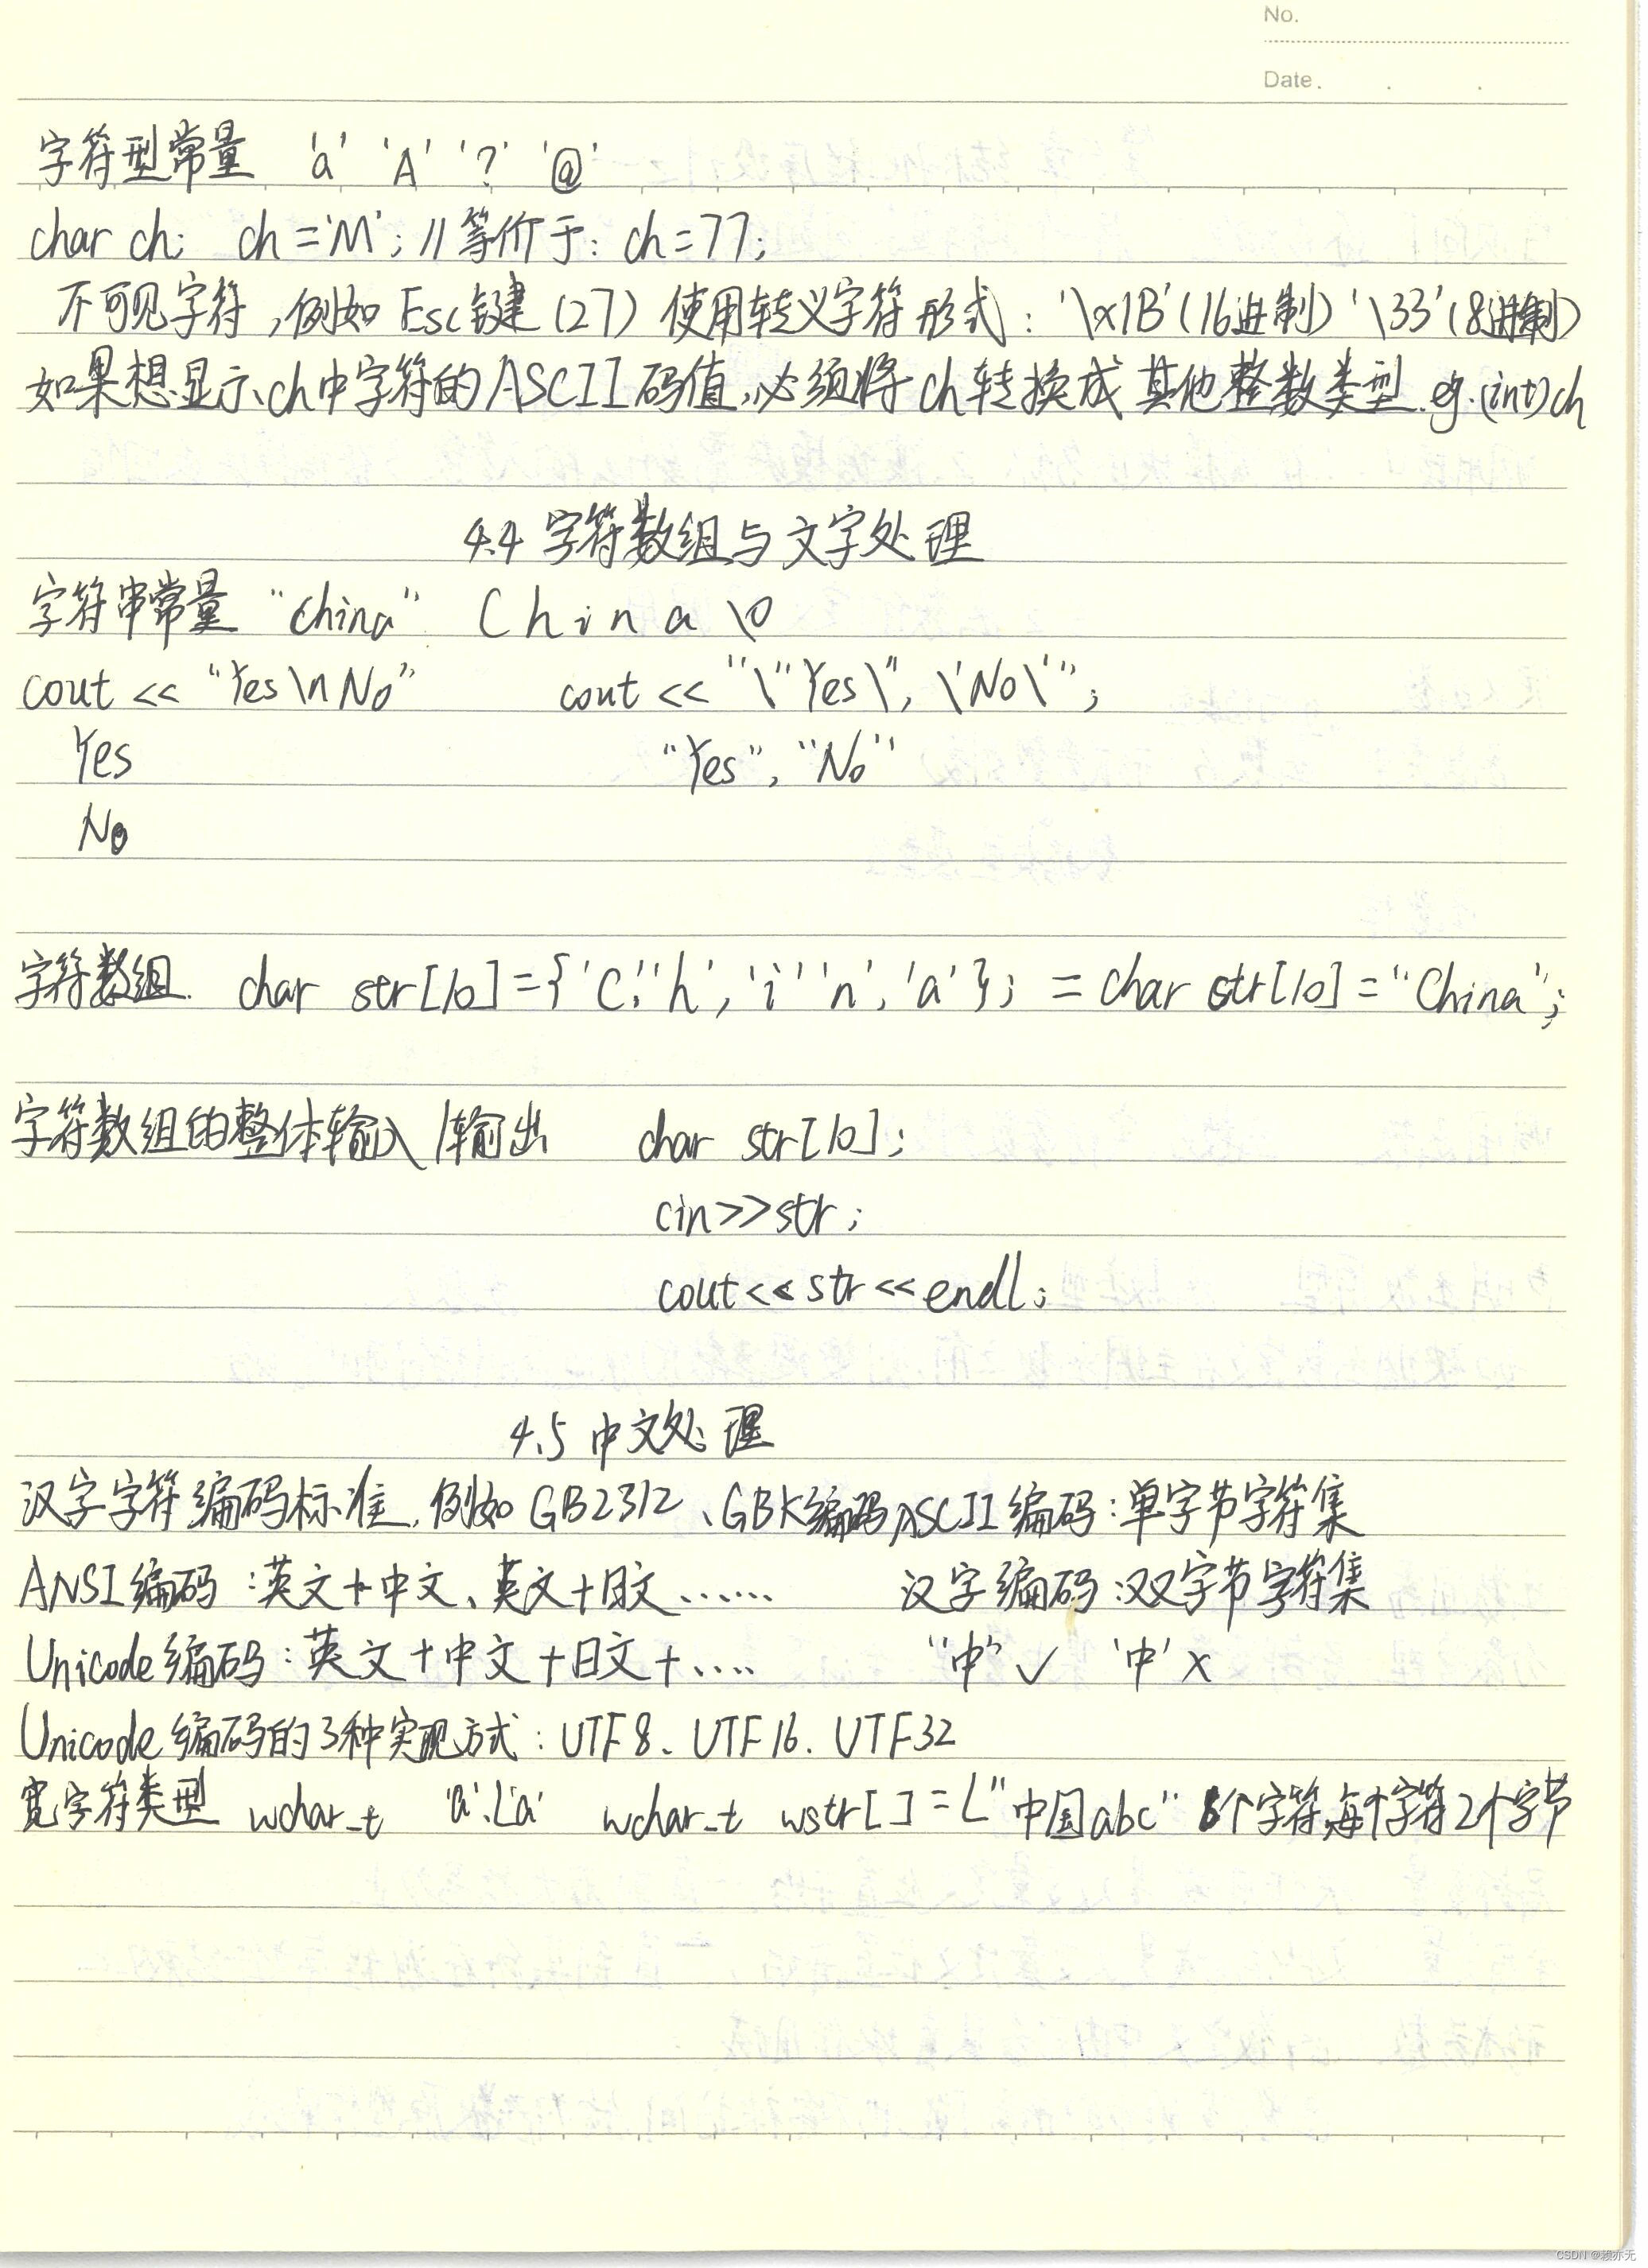 No.
Date.
字符型常量 'a' 'A' '?' '@'
char ch; ch='M'; //等价于: ch=77;
不可见字符,例如Esc键(27)使用转义字符形式: '\x1B'(16进制) '\33'(8进制)
如果想显示ch中字符的ASCII码值,必须将ch转换成其他整数类型. eg.(int)ch
4.4 字符数组与文字处理
字符串常量 "china" C h i n a \0
cout << "Yes\nNo" cout << "\"Yes\", \'No\'";
Yes "Yes", "No"
No
字符数组. char str[10]={'C','h','i''n','a'}; = char str[10]="China";
字符数组的整体输入/输出 char str[10];
cin>>str;
cout<<str<<endl;
4.5 中文处理
汉字字符编码标准,例如GB2312、GBK编码 ASCII编码:单字节字符集
ANSI编码:英文+中文、英文+日文...... 汉字编码:双字节字符集
Unicode编码:英文+中文+日文+.... "中"✓ '中'×
Unicode编码的3种实现方式: UTF8、UTF16、UTF32
宽字符类型 wchar_t 'a'、L'a' wchar_t wstr[]=L"中国abc" 6个字符,每个字符2个字节
CSDN @赖亦无